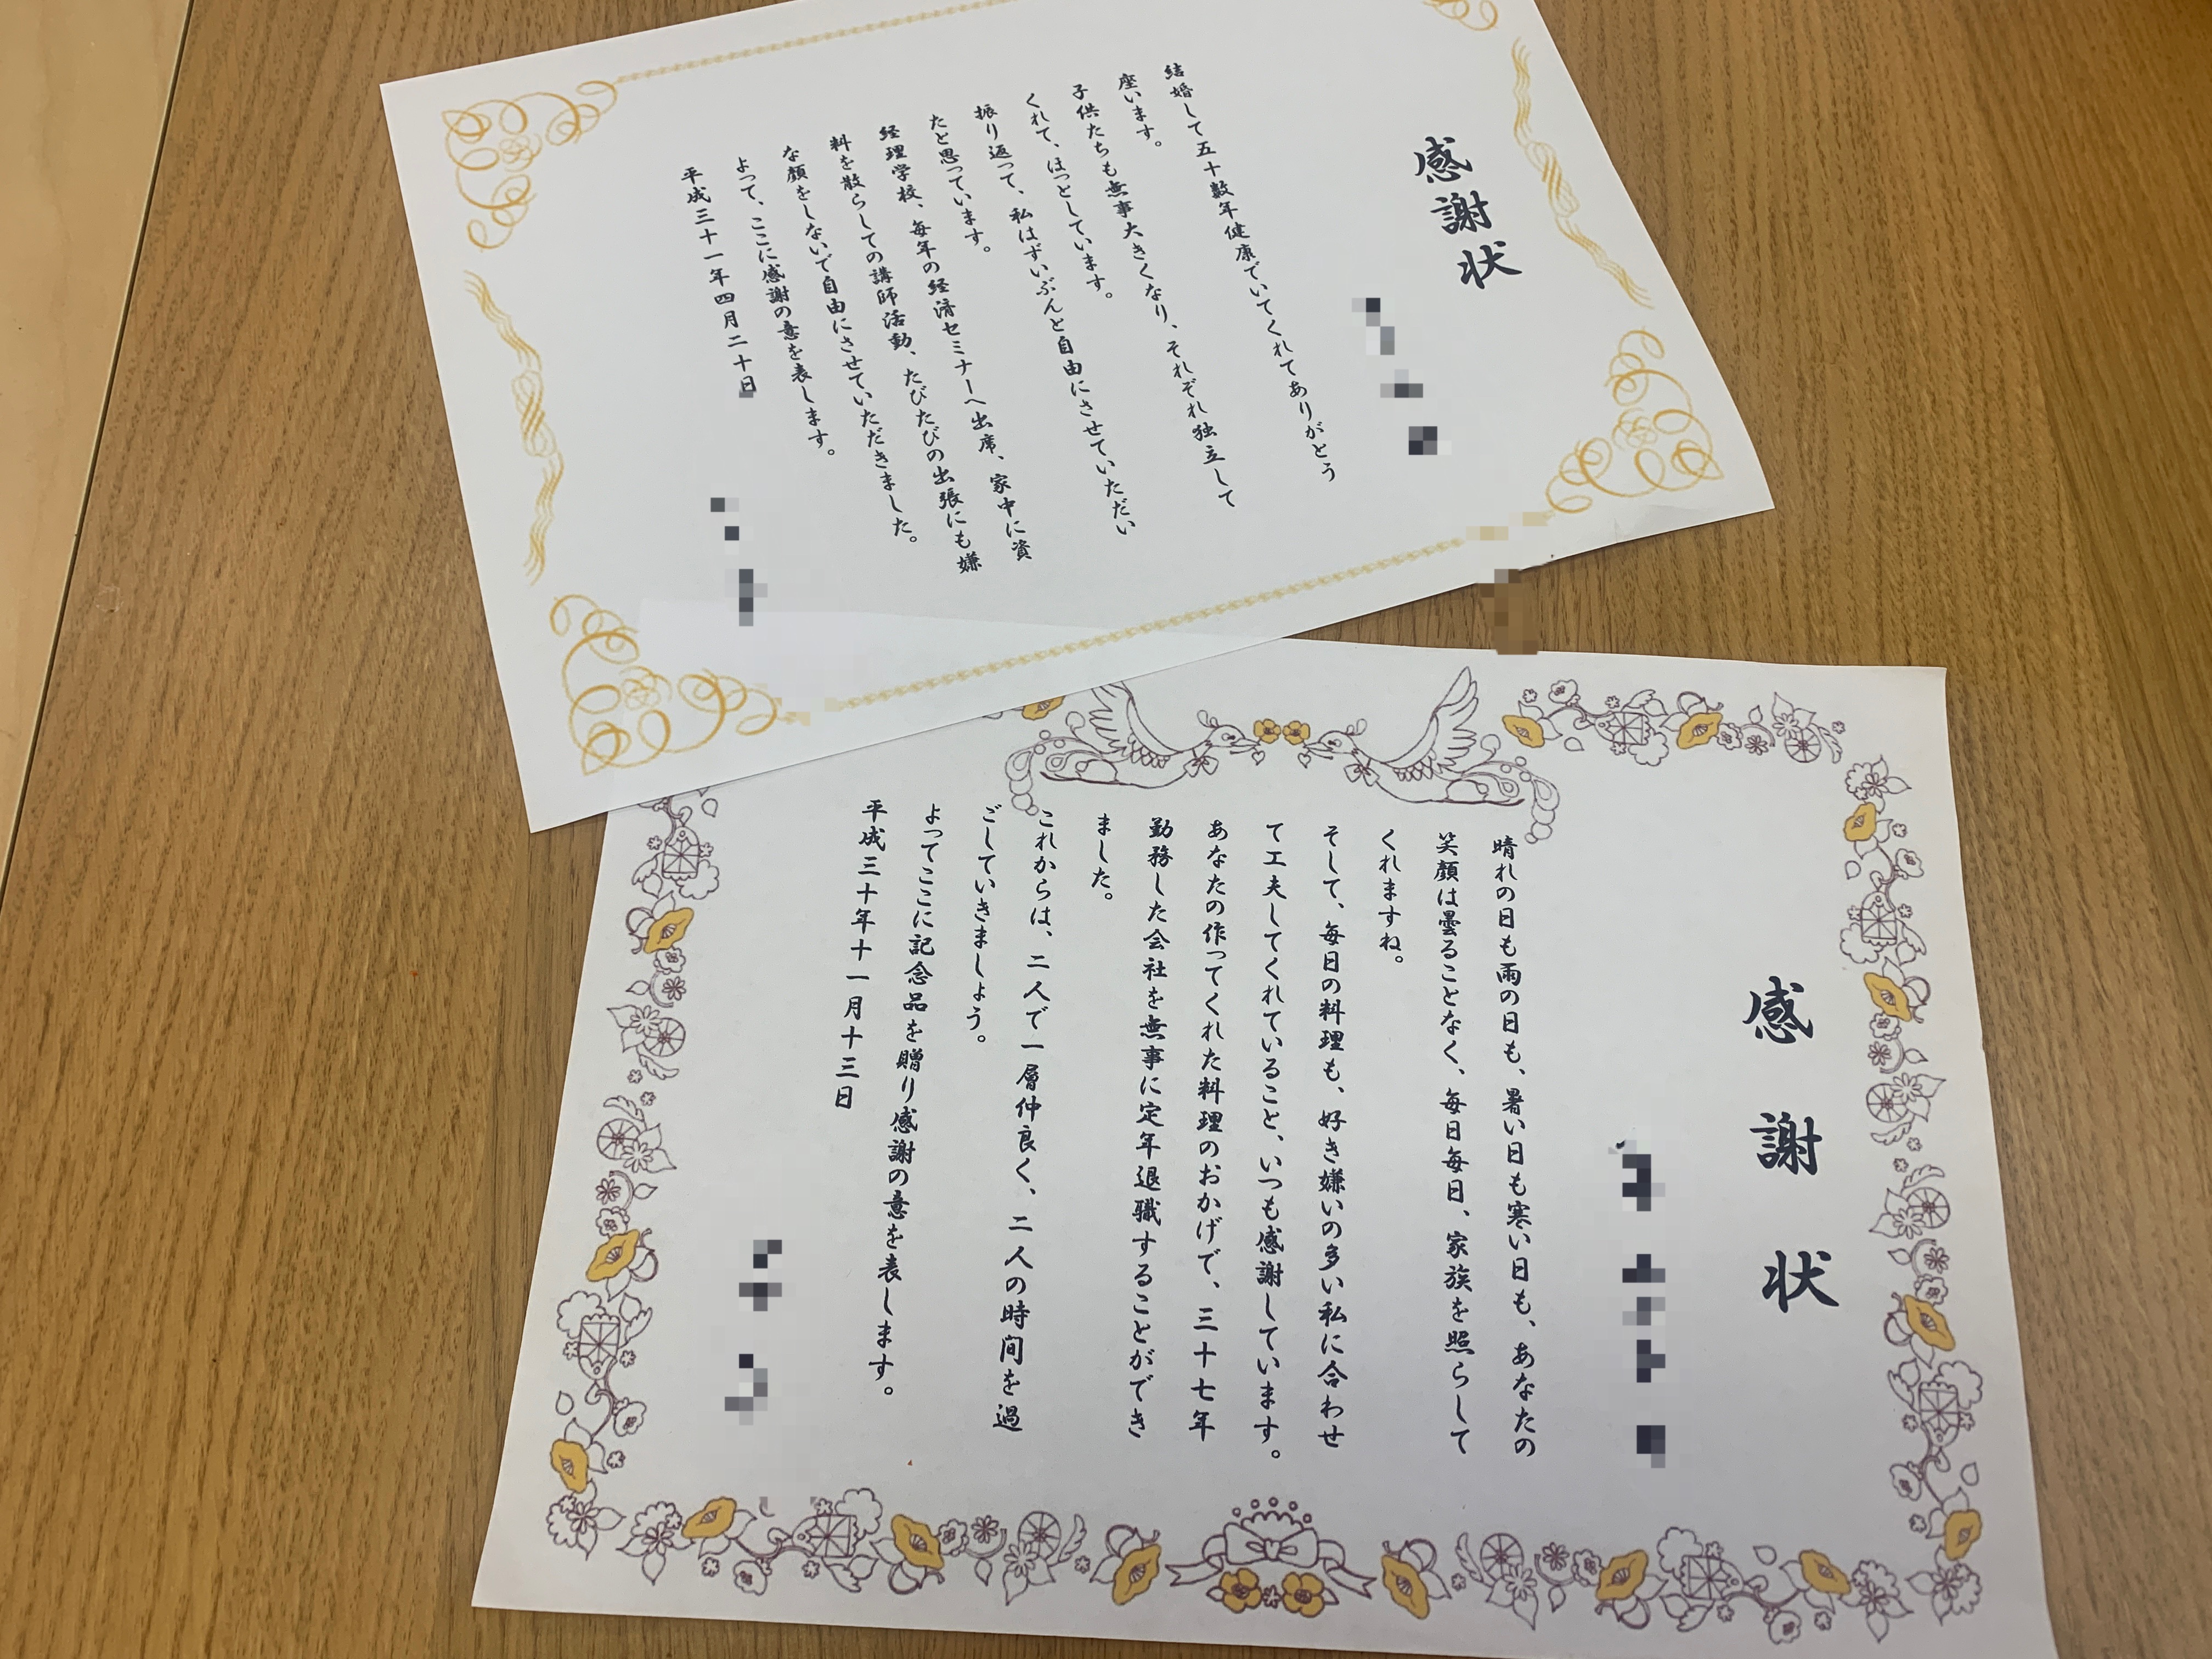 感謝状
結婚して五十数年健康でいてくれてありがとう
座います。
子供たちも無事大きくなり、それぞれ独立して
くれて、ほっとしています。
振り返って、私はずいぶんと自由にさせていただい
たと思っています。
経理学校、毎年の経済セミナーへ出席、家中に資
料を散らしての講師活動、たびたびの出張にも嫌
な顔をしないで自由にさせていただきました。
よって、ここに感謝の意を表します。
平成三十一年四月二十日
感謝状
晴れの日も雨の日も、暑い日も寒い日も、あなたの
笑顔は曇ることなく、毎日毎日、家族を照らして
くれますね。
そして、毎日の料理も、好き嫌いの多い私に合わせ
て工夫してくれていること、いつも感謝しています。
あなたの作ってくれた料理のおかげで、三十七年
勤務した会社を無事に定年退職することができ
ました。
これからは、二人で一層仲良く、二人の時間を過
ごしていきましょう。
よってここに記念品を贈り感謝の意を表します。
平成三十年十一月十三日